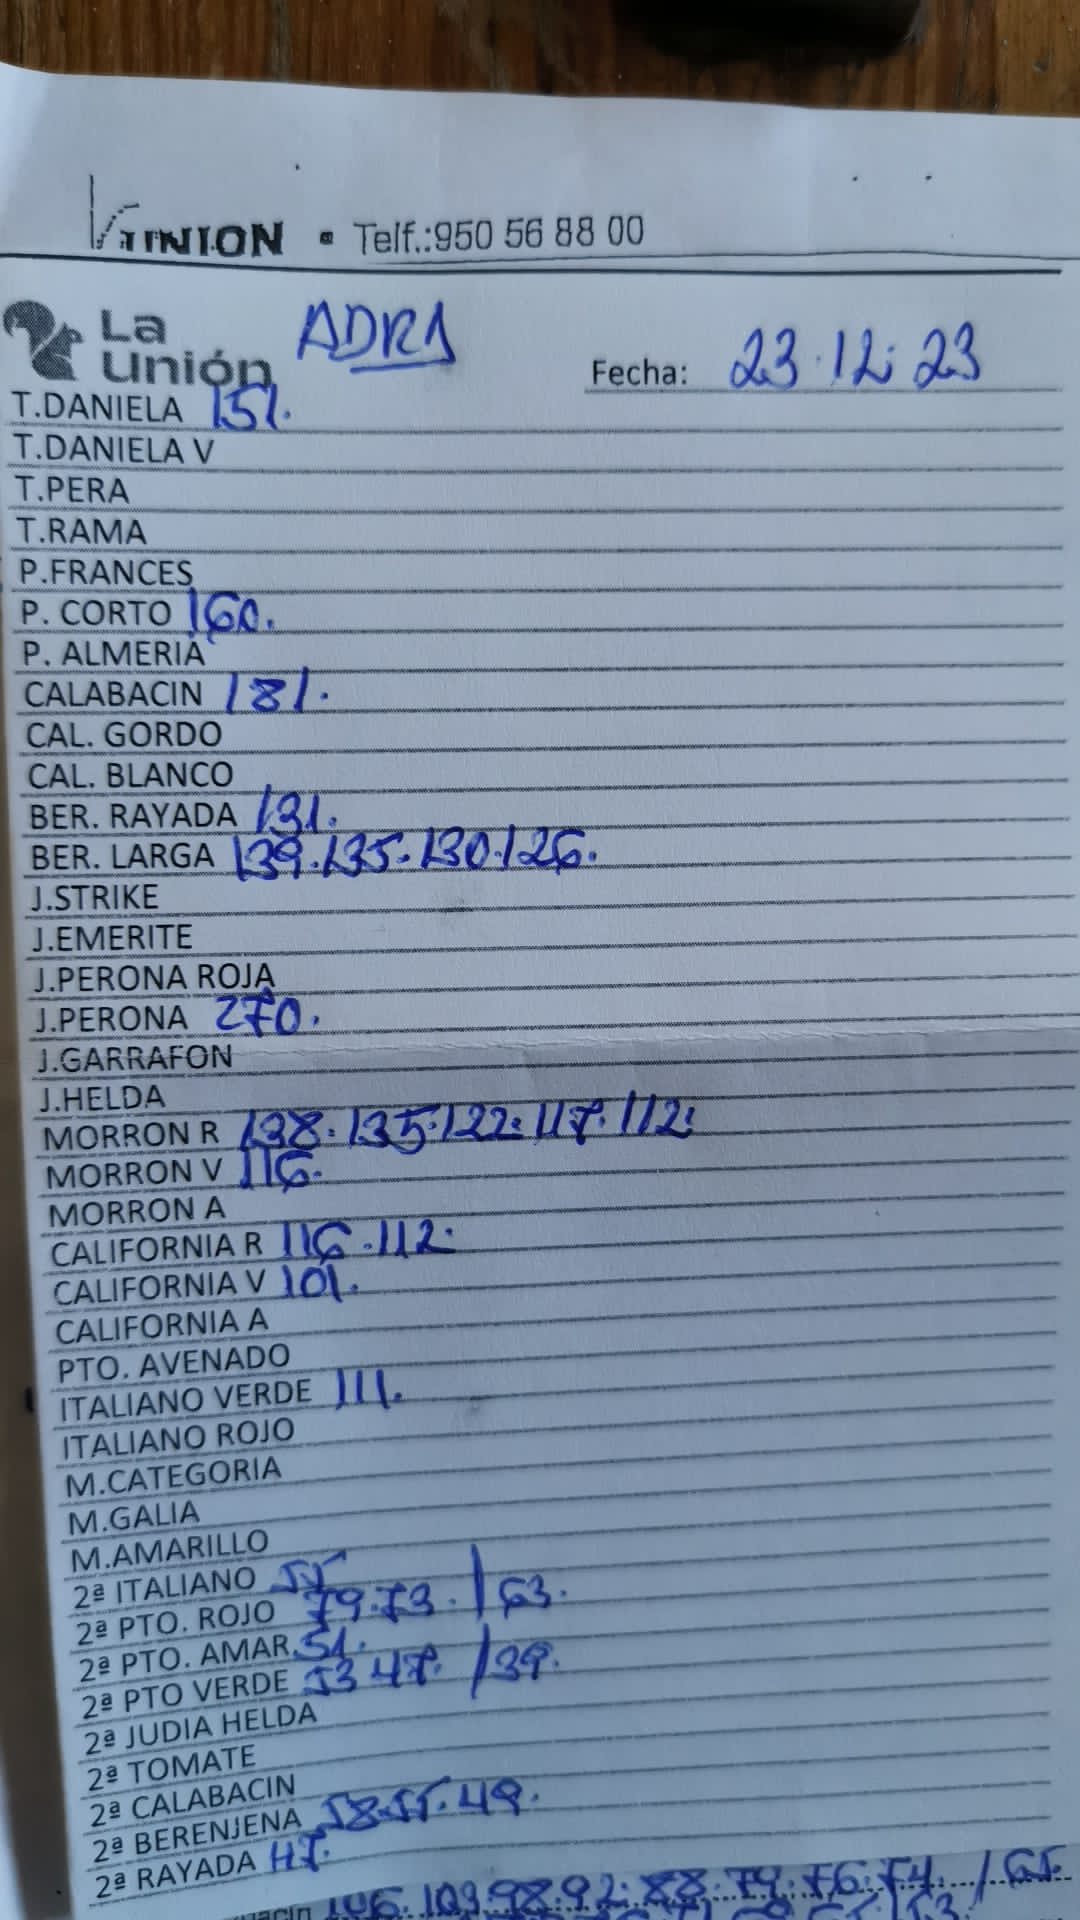 UNION • Telf.:950 56 88 00
La Unión ADRA
Fecha: 23·12·23
T.DANIELA 151.
T.DANIELA V
T.PERA
T.RAMA
P.FRANCES
P. CORTO 160.
P. ALMERIA
CALABACIN 181.
CAL. GORDO
CAL. BLANCO
BER. RAYADA 131.
BER. LARGA 139.135.130.126.
J.STRIKE
J.EMERITE
J.PERONA ROJA
J.PERONA 270.
J.GARRAFON
J.HELDA
MORRON R 138.135.122.117.112.
MORRON V 116.
MORRON A
CALIFORNIA R 116.112.
CALIFORNIA V 101.
CALIFORNIA A
PTO. AVENADO
ITALIANO VERDE 111.
ITALIANO ROJO
M.CATEGORIA
M.GALIA
M.AMARILLO
2ª ITALIANO 55
2ª PTO. ROJO 79.73. / 63.
2ª PTO. AMAR. 51.
2ª PTO VERDE 53 47. / 39.
2ª JUDIA HELDA
2ª TOMATE
2ª CALABACIN
2ª BERENJENA 58.55.49.
2ª RAYADA 47.
106.109.98.92.88.79.76.74. / 65.